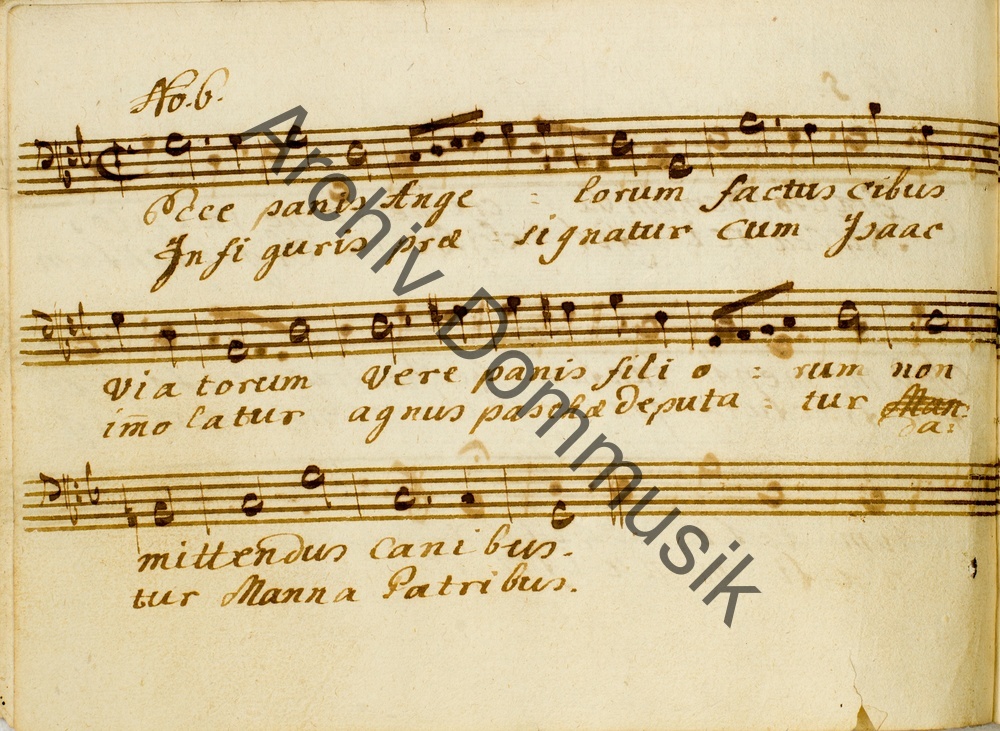 No. 6.
Ecce panis Ange = lorum factus cibus
In figuris præ = signatur cum Isaac
via torum vere panis fili o = rum non
im̄o latur agnus paschæ deputa = tur Man:
da:
mittendus canibus.
tur Manna Patribus.
Archiv Dommusik